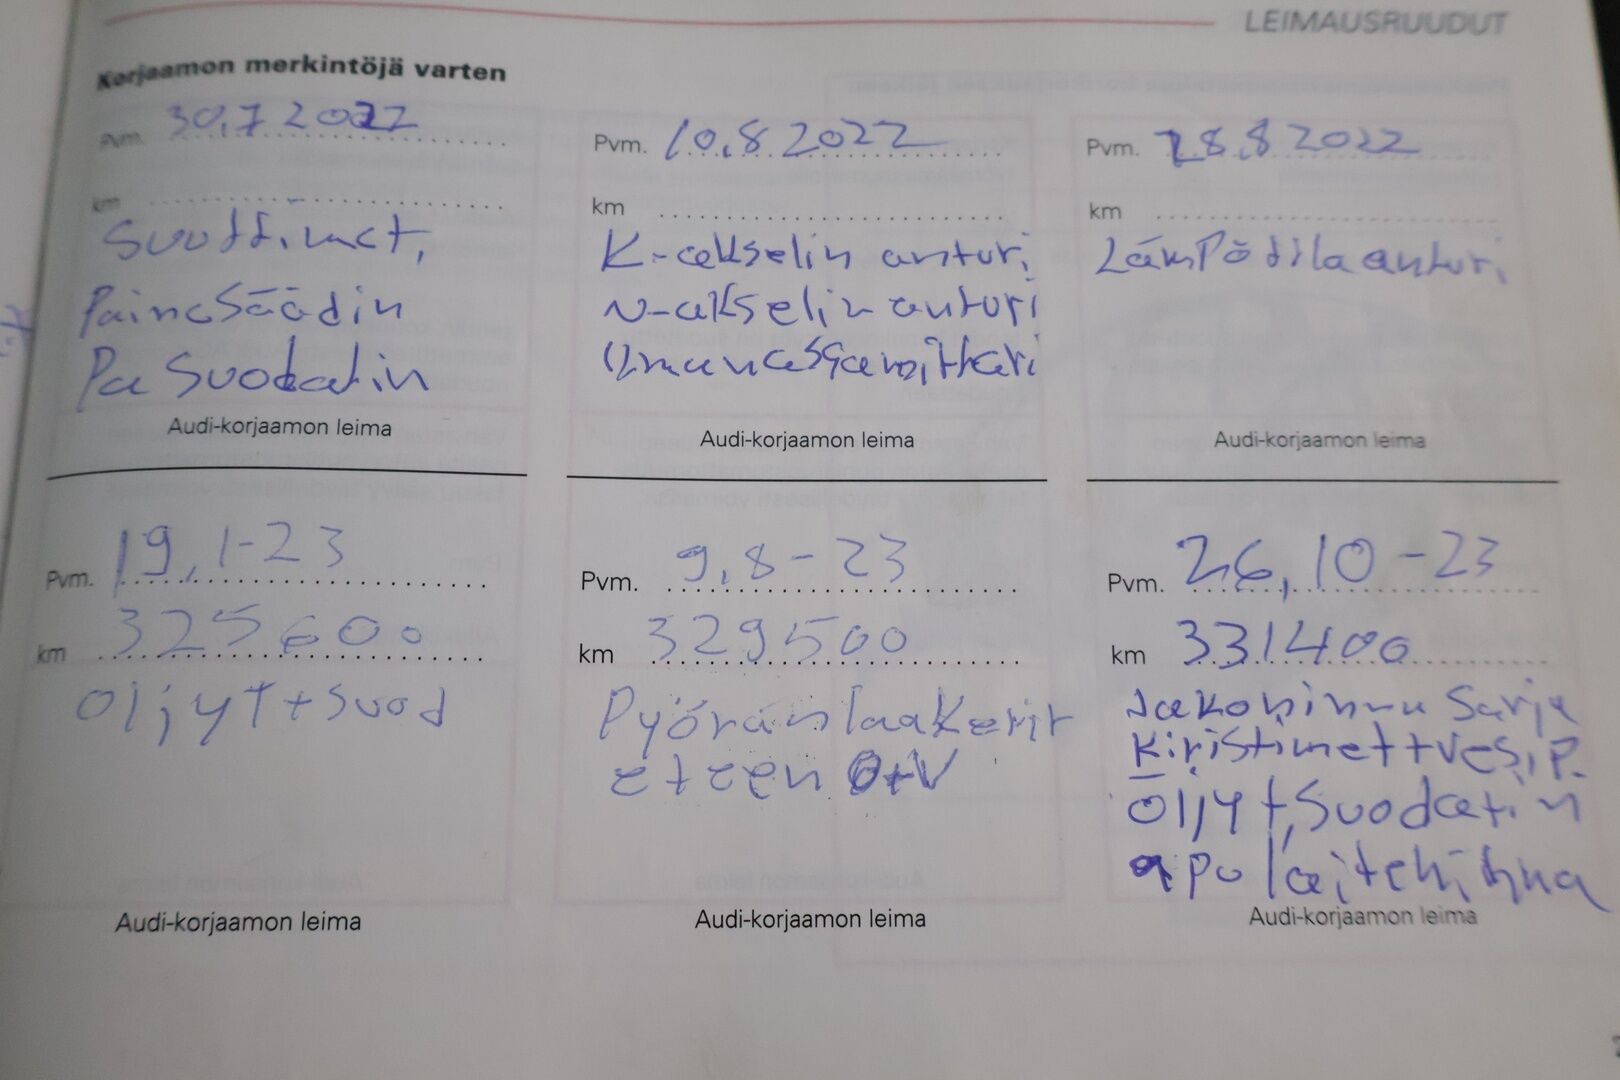 LEIMAUSRUUDUT
Korjaamon merkintöjä varten
Pvm. 30,7 2022
km
Suuttimet,
Painesäädin
Pa Suodatin
Audi-korjaamon leima
Pvm. 10,8 2022
km
K-akselin anturi
N-akselin anturi
Ilmamassamittari
Audi-korjaamon leima
Pvm. 28,8 2022
km
Lämpötila anturi
Audi-korjaamon leima
Pvm. 19,1-23
km 325600
Öljyt + suod
Audi-korjaamon leima
Pvm. 9,8-23
km 329500
Pyörän laakerit
eteen O+V
Audi-korjaamon leima
Pvm. 26,10-23
km 331400
Jakohihna Sarja
Kiristimet+Vesi.P.
Öljyt, Suodatin
apulaitehihna
Audi-korjaamon leima